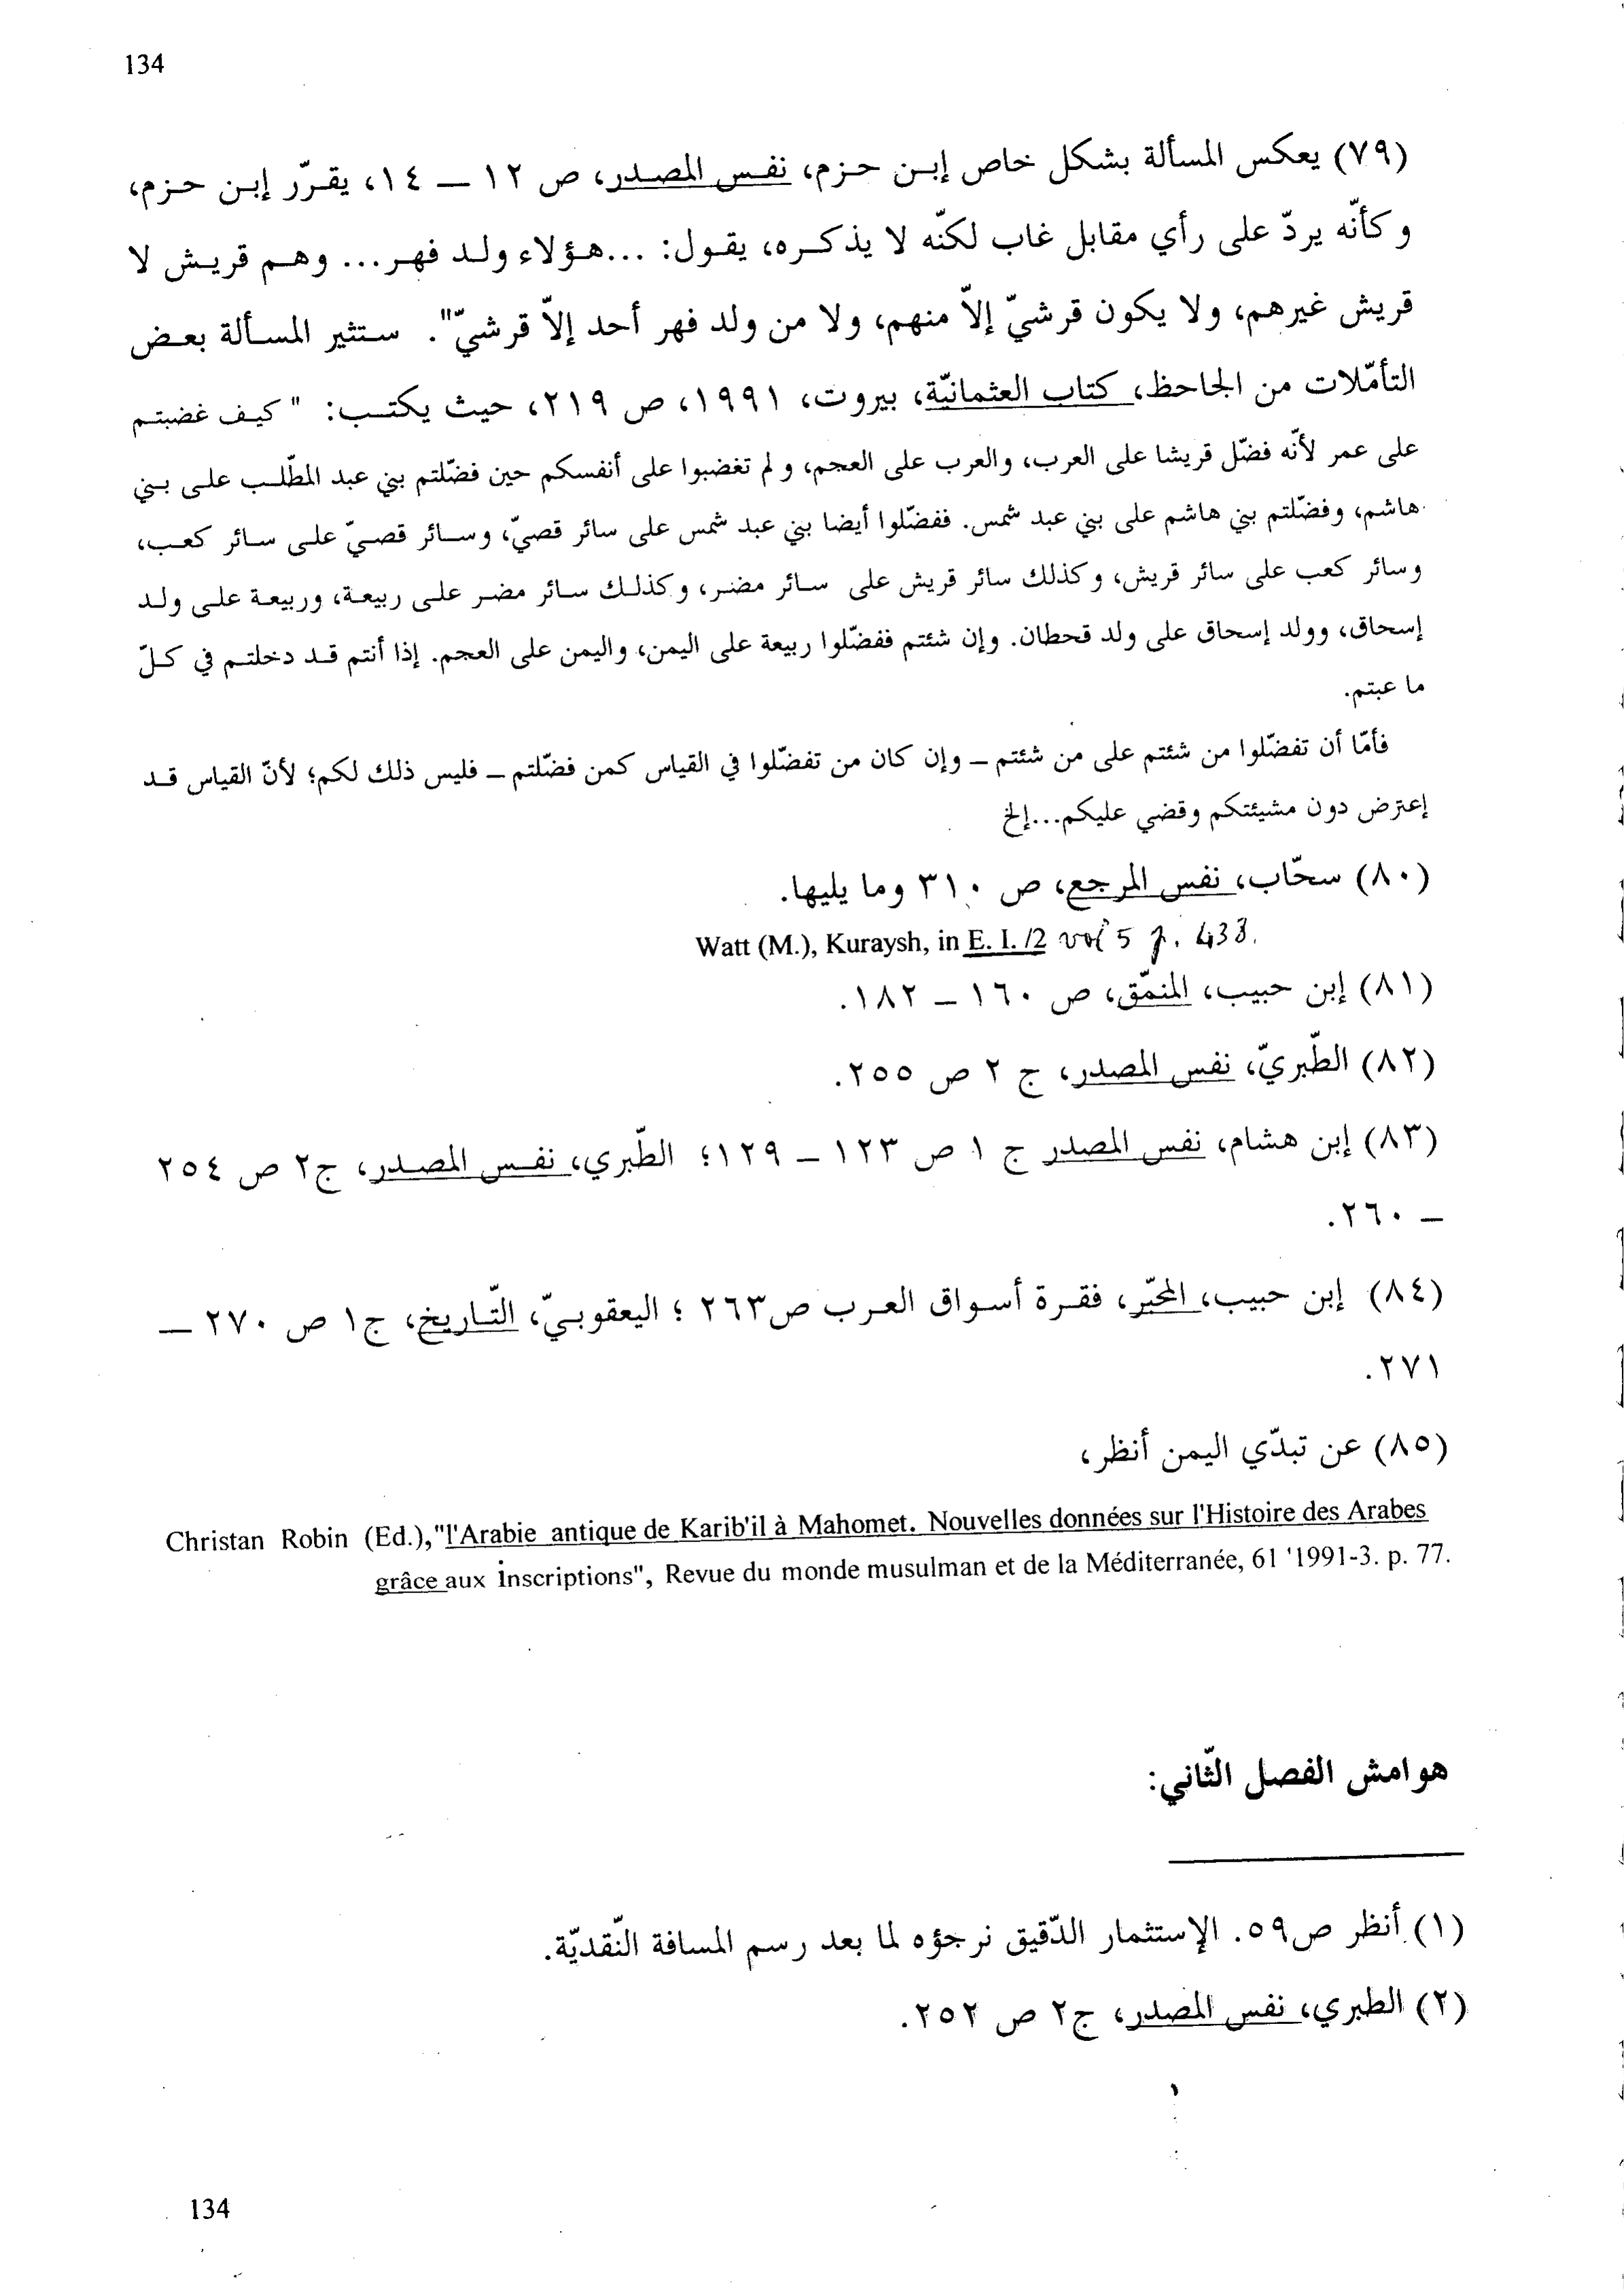 134
(٧٩) يعكس المسألة بشكل خاص إبن حزم، نفس المصدر، ص ١٢ – ١٤، يقرّر إبن حزم،
وكأنّه يردّ على رأي مقابل غاب لكنّه لا يذكره، يقول: ...هؤلاء ولد فهر... وهم قريش لا
قريش غيرهم، ولا يكون قرشيّ إلاّ منهم، ولا من ولد فهر أحد إلاّ قرشيّ". ستثير المسألة بعض
التأمّلات من الجاحظ، كتاب العثمانيّة، بيروت، ١٩٩١، ص ٢١٩، حيث يكتب: " كيف غضبتم
على عمر لأنّه فضّل قريشا على العرب، والعرب على العجم، ولم تغضبوا على أنفسكم حين فضّلتم بني عبد المطّلب على بني
هاشم، وفضّلتم بني هاشم على بني عبد شمس. ففضّلوا أيضا بني عبد شمس على سائر قصيّ، وسائر قصيّ على سائر كعب،
وسائر كعب على سائر قريش، وكذلك سائر قريش على سائر مضر، وكذلك سائر مضر على ربيعة، وربيعة على ولد
إسحاق، وولد إسحاق على ولد قحطان. وإن شئتم ففضّلوا ربيعة على اليمن، واليمن على العجم. إذا أنتم قد دخلتم في كلّ
ما عبتم.
فأمّا أن تفضّلوا من شئتم على من شئتم – وإن كان من تفضّلوا في القياس كمن فضّلتم – فليس ذلك لكم؛ لأنّ القياس قد
إعترض دون مشيئتكم وقضي عليكم...إلخ
(٨٠) سحّاب، نفس المرجع، ص ٣١٠ وما يليها.
Watt (M.), Kuraysh, in E. I. /2 vol 5 p. 438.
(٨١) إبن حبيب، المنمّق، ص ١٦٠ – ١٨٢.
(٨٢) الطّبريّ، نفس المصدر، ج ٢ ص ٢٥٥.
(٨٣) إبن هشام، نفس المصدر ج ١ ص ١٢٣ – ١٢٩؛ الطّبري، نفس المصدر، ج٢ ص ٢٥٤
– ٢٦٠.
(٨٤) إبن حبيب، المحبّر، فقرة أسواق العرب ص٢٦٣ ؛ اليعقوبيّ، التّاريخ، ج١ ص ٢٧٠ –
٢٧١.
(٨٥) عن تبدّي اليمن أنظر،
Christan Robin (Ed.),"l'Arabie antique de Karib'il à Mahomet. Nouvelles données sur l'Histoire des Arabes
grâce aux inscriptions", Revue du monde musulman et de la Méditerranée, 61 '1991-3. p. 77.
هوامش الفصل الثّاني:
(١) أنظر ص٥٩. الإستثمار الدّقيق نرجؤه لما بعد رسم المسافة النّقديّة.
(٢) الطبري، نفس المصدر، ج٢ ص ٢٥٢.
134